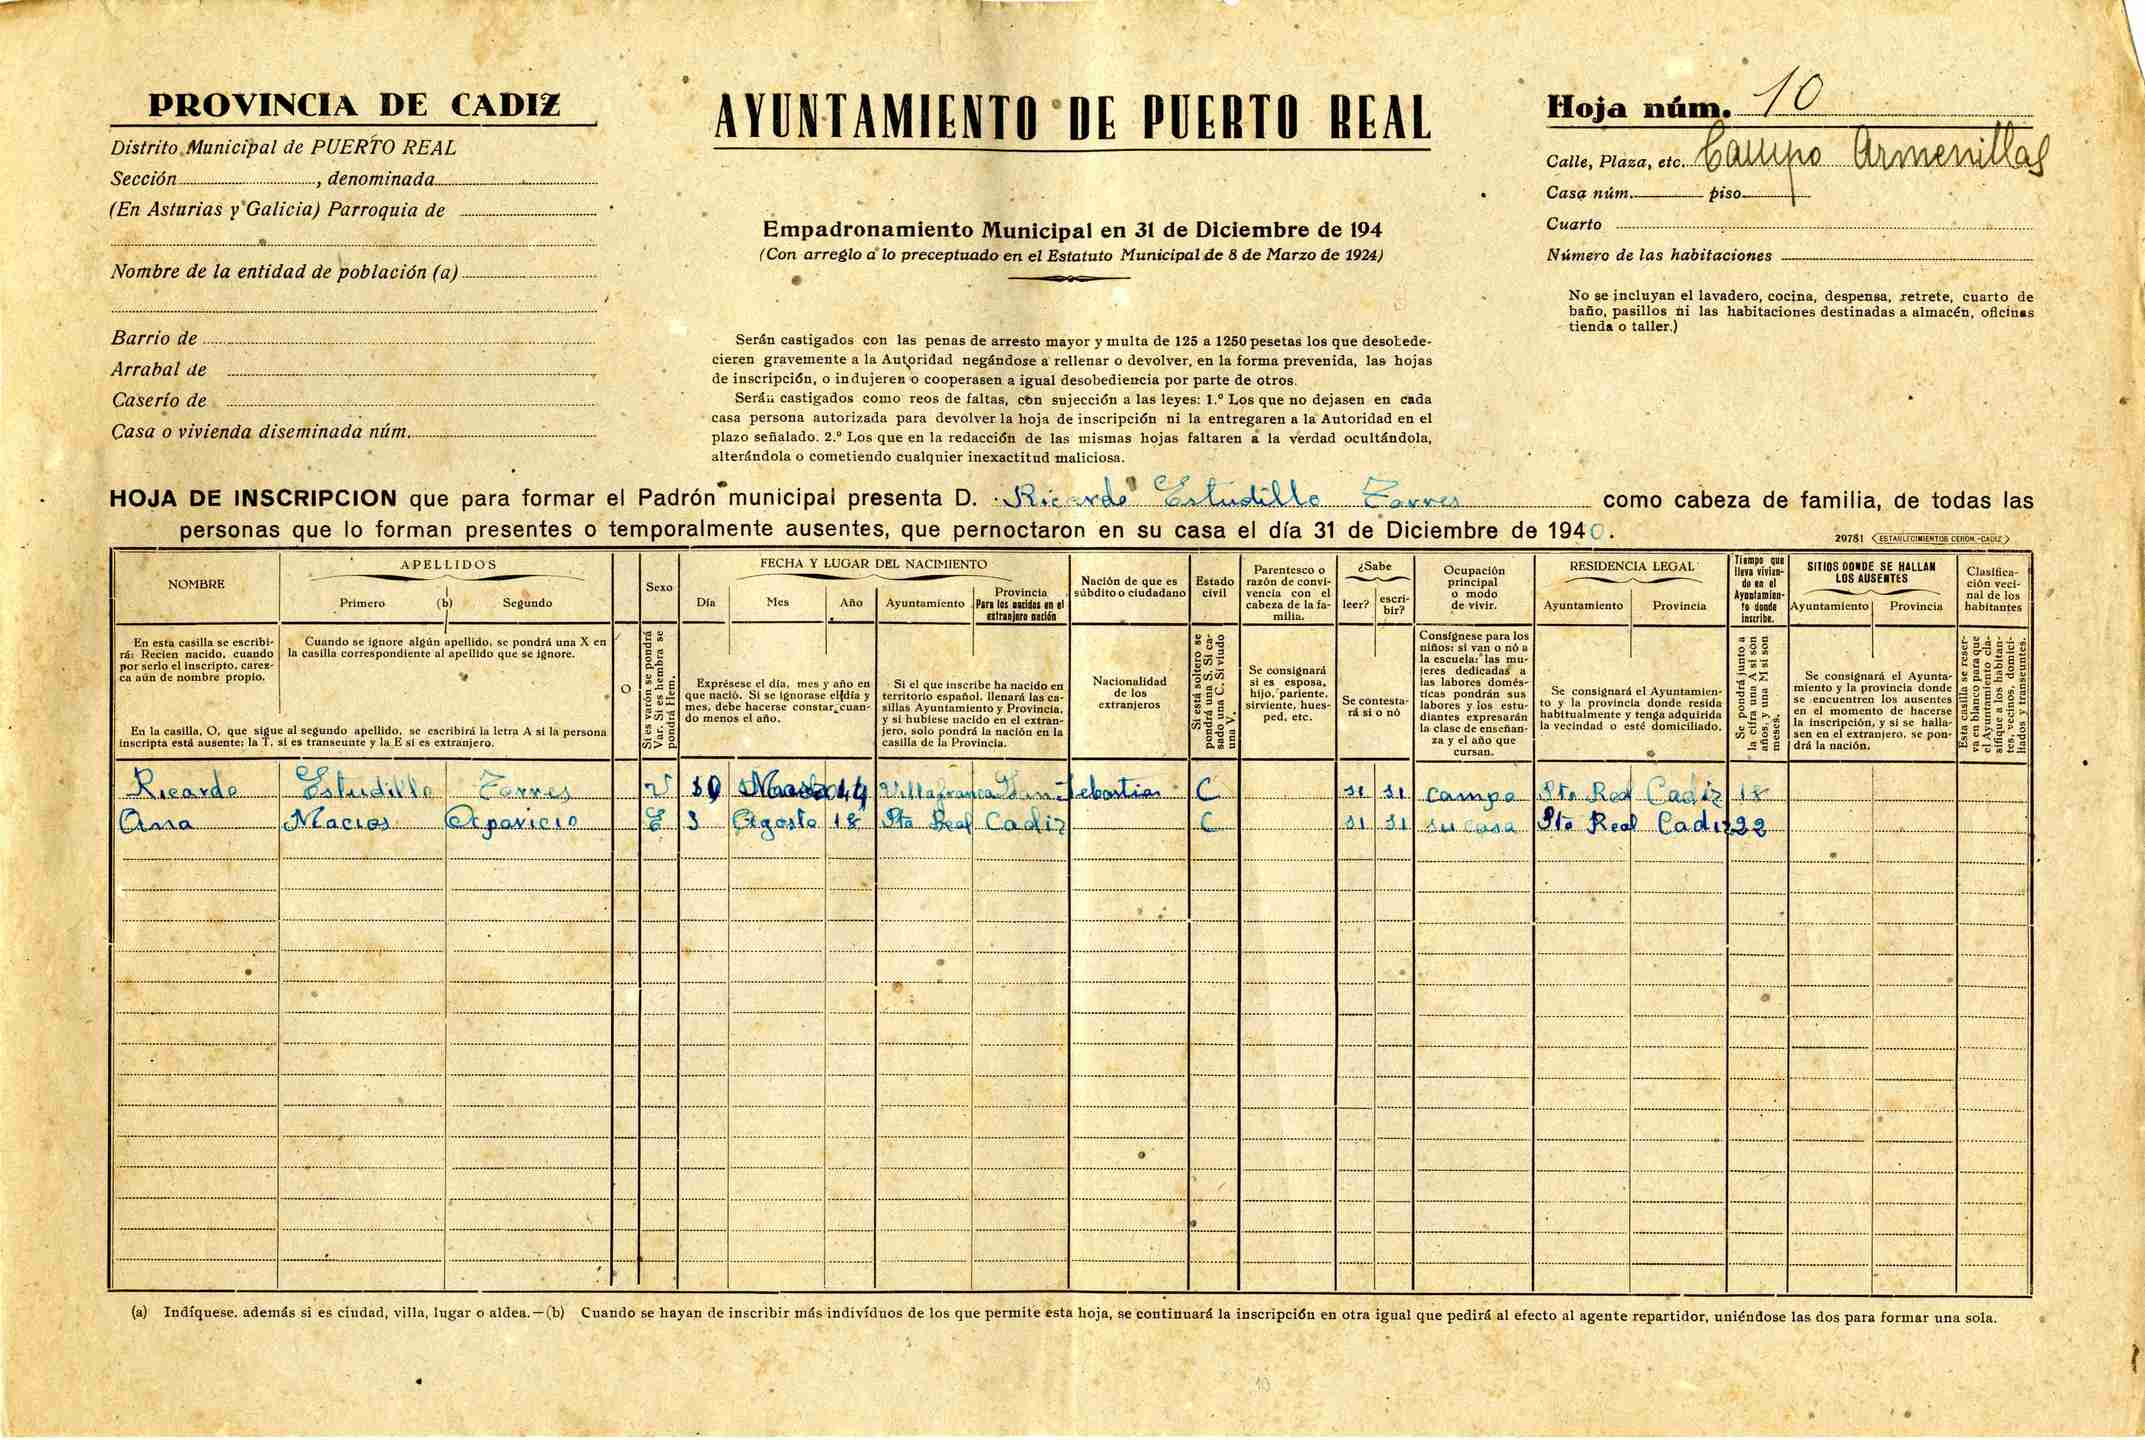 PROVINCIA DE CADIZ
Distrito Municipal de PUERTO REAL
Sección, denominada
(En Asturias y Galicia) Parroquia de
Nombre de la entidad de población (a)
Barrio de
Arrabal de
Caserío de
Casa o vivienda diseminada núm.
AYUNTAMIENTO DE PUERTO REAL
Empadronamiento Municipal en 31 de Diciembre de 194
(Con arreglo a lo preceptuado en el Estatuto Municipal de 8 de Marzo de 1924)
Serán castigados con las penas de arresto mayor y multa de 125 a 1250 pesetas los que desobede-
cieren gravemente a la Autoridad negándose a rellenar o devolver, en la forma prevenida, las hojas
de inscripción, o indujeren o cooperasen a igual desobediencia por parte de otros.
Serán castigados como reos de faltas, con sujección a las leyes: 1.º Los que no dejasen en cada
casa persona autorizada para devolver la hoja de inscripción ni la entregaren a la Autoridad en el
plazo señalado. 2.º Los que en la redacción de las mismas hojas faltaren a la verdad ocultándola,
alterándola o cometiendo cualquier inexactitud maliciosa.
Hoja núm. 10
Calle, Plaza, etc. Campo Armenillas
Casa núm. piso
Cuarto
Número de las habitaciones
No se incluyan el lavadero, cocina, despensa, retrete, cuarto de
baño, pasillos ni las habitaciones destinadas a almacén, oficinas
tienda o taller.)
HOJA DE INSCRIPCION que para formar el Padrón municipal presenta D. Ricardo Estudillo Torres como cabeza de familia, de todas las
personas que lo forman presentes o temporalmente ausentes, que pernoctaron en su casa el día 31 de Diciembre de 1940.
29781 ESTABLECIMIENTOS CERON.-CADIZ
NOMBRE
En esta casilla se escribi-
rá: Recien nacido, cuando
por serlo el inscripto, carez-
ca aún de nombre propio.
APELLIDOS
Primero (b) Segundo
Cuando se ignore algún apellido, se pondrá una X en
la casilla correspondiente al apellido que se ignore.
En la casilla, O, que sigue al segundo apellido, se escribirá la letra A si la persona
inscripta está ausente; la T, si es transeunte y la E si es extranjero.
O
Sexo
Si es varón se pondrá
Var. Si es hembra se
pondrá Hem.
FECHA Y LUGAR DEL NACIMIENTO
Día Mes Año Ayuntamiento
Provincia
Para los nacidos en el
extranjero nación
Exprésese el día, mes y año en
que nació. Si se ignorase el día y
mes, debe hacerse constar, cuan-
do menos el año.
Si el que inscribe ha nacido en
territorio español, llenará las ca-
sillas Ayuntamiento y Provincia,
y si hubiese nacido en el extran-
jero, solo pondrá la nación en la
casilla de la Provincia.
Nación de que es
súbdito o ciudadano
Nacionalidad
de los
extranjeros
Estado
civil
Si está soltero se
pondrá una S. Si ca-
sado una C. Si viudo
una V.
Parentesco o
razón de convi-
vencia con el
cabeza de la fa-
milia.
Se consignará
si es esposa,
hijo, pariente,
sirviente, hues-
ped, etc.
¿Sabe
leer? escri-
bir?
Se contesta-
rá si o nó
Ocupación
principal
o modo
de vivir.
Consígnese para los
niños: si van o nó a
la escuela: las mu-
jeres dedicadas a
las labores domés-
ticas pondrán sus
labores y los estu-
diantes expresarán
la clase de enseñan-
za y el año que
cursan.
RESIDENCIA LEGAL
Ayuntamiento Provincia
Se consignará el Ayuntamien-
to y la provincia donde resida
habitualmente y tenga adquirida
la vecindad o esté domiciliado.
Tiempo que
lleva vivien-
do en el
Ayuntamien-
to donde
inscribe.
Se pondrá junto a
la cifra una A si son
años, y una M si son
meses.
SITIOS DONDE SE HALLAN
LOS AUSENTES
Ayuntamiento Provincia
Se consignará el Ayunta-
miento y la provincia donde
se encuentren los ausentes
en el momento de hacerse
la inscripción, y si se halla-
sen en el extranjero, se pon-
drá la nación.
Clasifica-
ción veci-
nal de los
habitantes
Esta casilla se reser-
va en blanco para que
el Ayuntamiento cla-
sifique a los habitan-
tes, vecinos, domici-
liados y transeuntes.
Ricardo Estudillo Torres V 10 Marzo 14 Villafranca San Sebastian C si si campo Pto Real Cadiz 18
Ana Macias Aparicio E 3 Agosto 18 Pto Real Cadiz C si si su casa Pto Real Cadiz 22
(a) Indíquese, además si es ciudad, villa, lugar o aldea.—(b) Cuando se hayan de inscribir más indivíduos de los que permite esta hoja, se continuará la inscripción en otra igual que pedirá al efecto al agente repartidor, uniéndose las dos para formar una sola.
10